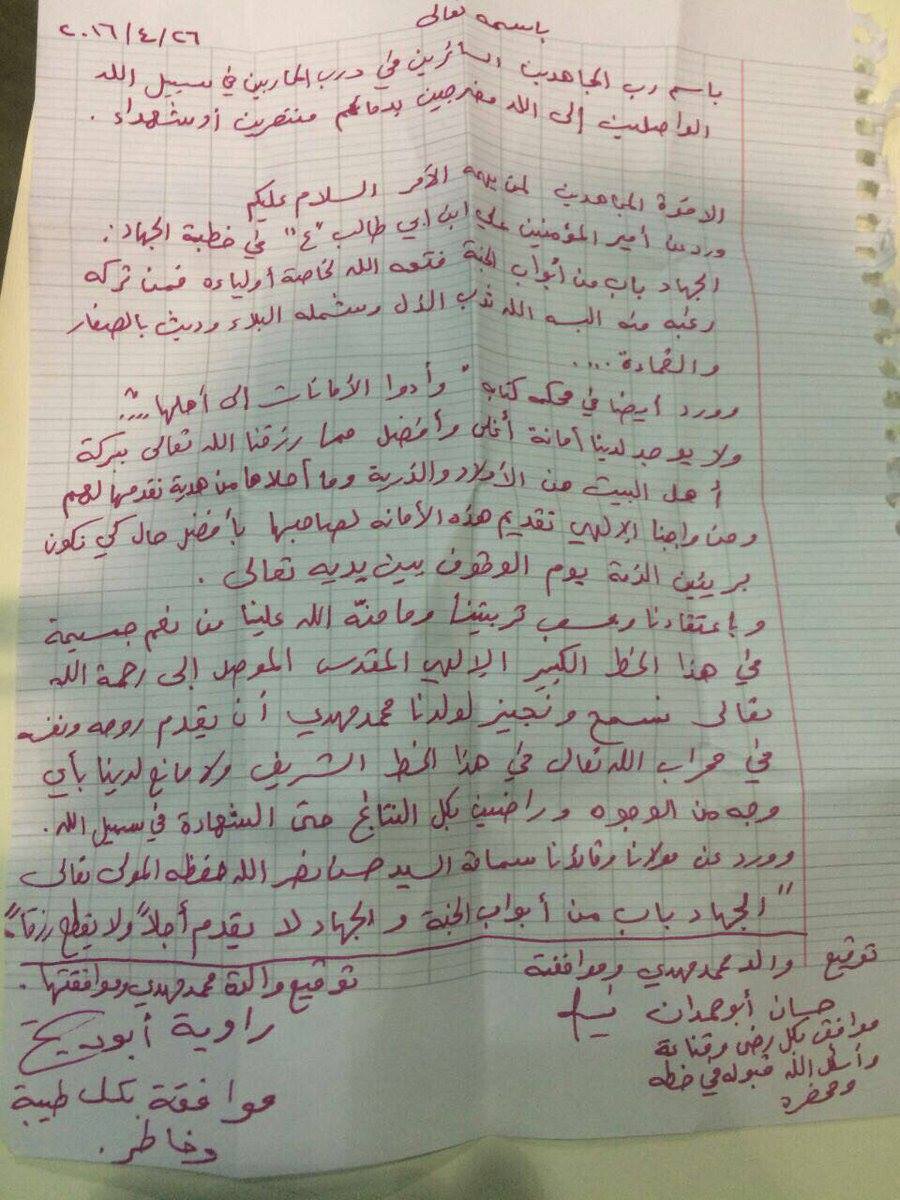 باسمه تعالى
٢٠١٦/٤/٢٦
باسم رب المجاهدين السائرين في درب المحاربين في سبيل الله
الواصلين إلى الله مضرجين بدمائهم منتصرين أو شهداء.
الاخوة المجاهدين لمن يهمه الأمر السلام عليكم
ورد عن أمير المؤمنين علي ابن ابي طالب "ع" في خطبة الجهاد:
الجهاد باب من أبواب الجنة فتحه الله لخاصة أولياءه فمن تركه
رغبه منه البسه الله ثوب الذل وشمله البلاء وديث بالصغار
والقماءة ....
وورد ايضا في محكم كتابه "وأدوا الأمانات إلى أهلها ...."
ولا يوجد لدينا أمانة أغلى وأفضل مما رزقنا الله تعالى ببركة
أهل البيت من الأولاد والذرية وما أحلاها من هدية نقدمها لهم
ومن واجبنا الإلهي تقديم هذه الأمانه لصاحبها بأفضل حال كي نكون
بريئين الذمة يوم الوقوف بين يديه تعالى.
وبإعتقادنا وحسب تربيتنا وما منّه الله علينا من نعم جسيمة
في هذا الخط الكبير الإلهي المقدس الموصل إلى رحمة الله
تعالى نسمح ونجيز لولدنا محمد مهدي أن يقدم روحه ونفسه
في محراب الله تعالى في هذا الخط الشريف ولا مانع لدينا بأي
وجه من الوجوه وراضين بكل النتائج حتى الشهادة في سبيل الله.
وورد عن مولانا وقائدنا سماحة السيد حسن نصر الله حفظه المولى تعالى
"الجهاد باب من أبواب الجنة و الجهاد لا يقدم أجلاً ولا يقطع رزقاً"
توقيع والد محمد مهدي وموافقته
حسان أبو حمدان
موافق بكل رضى وقناعة
وأسأل الله قبوله في خطه
ومحضره
توقيع والدة محمد مهدي وموافقتها.
راوية أبو
موافقة بكل طيبة
وخاطر.